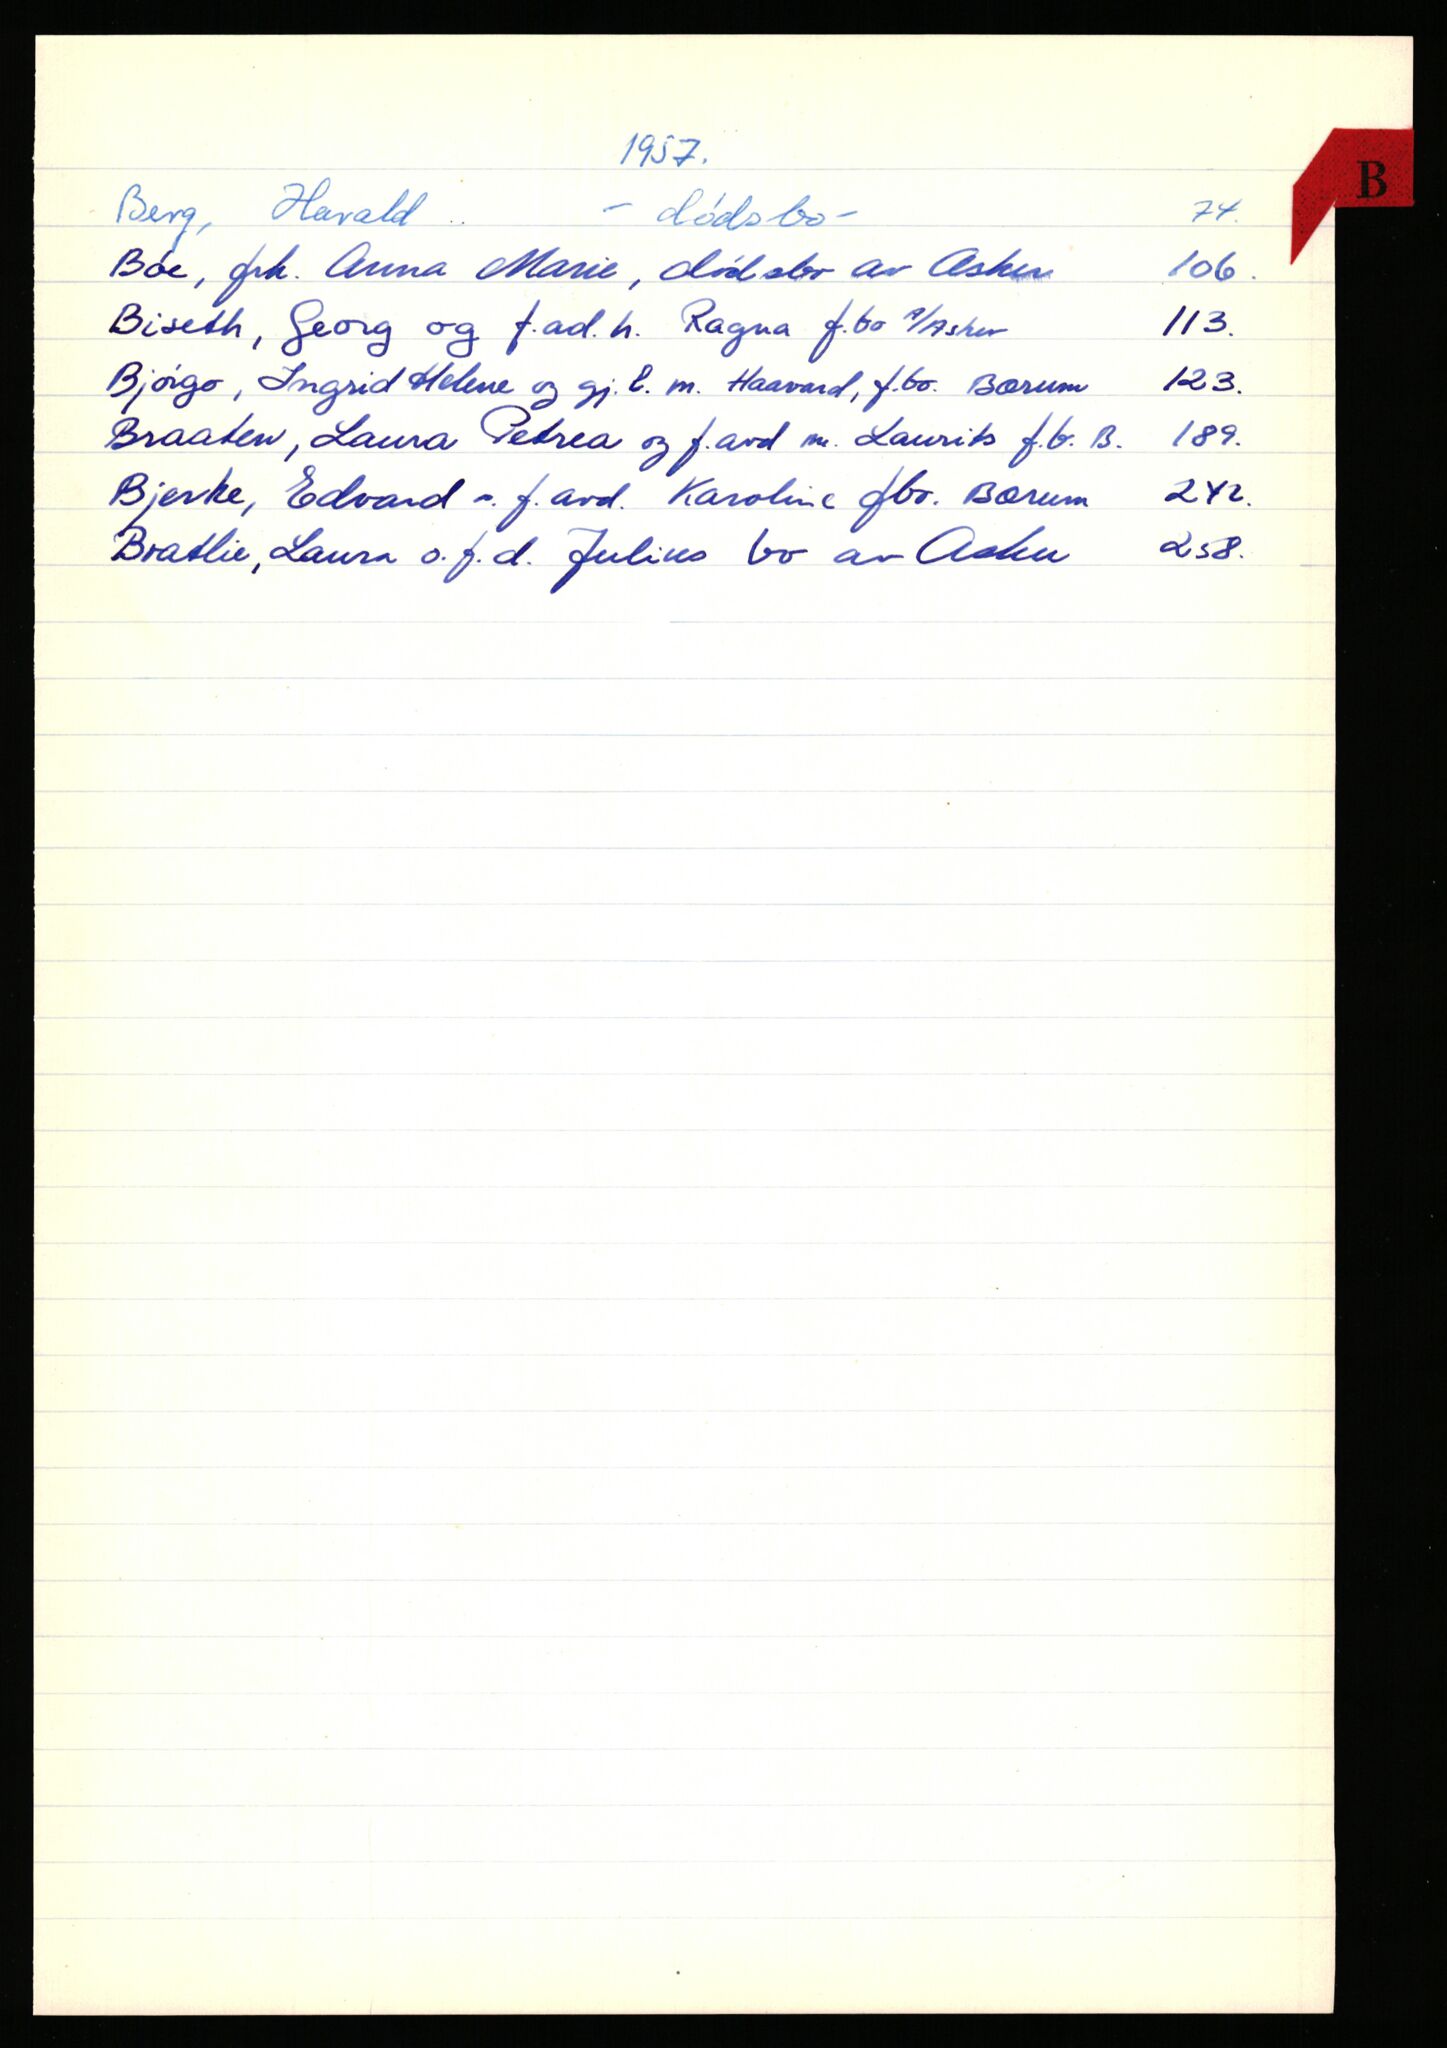 1957.
B
Berg, Harald - dødsbo - 74.
Bøe, frk. Anna Marie, dødsbo av Asker 106.
Biseth, Georg og f.avd. h. Ragna f.bo a/Asker 113.
Bjørgo, Ingrid Helene og gj.l. m. Haavard, f.bo. Bærum 123.
Braaten, Laura Petrea og f.avd m. Laurits f.b. B. 189.
Bjerke, Edvard o. f.avd. Karoline fbo. Bærum 242.
Bratlie, Laura o.f.d. Julius bo av Asker 258.